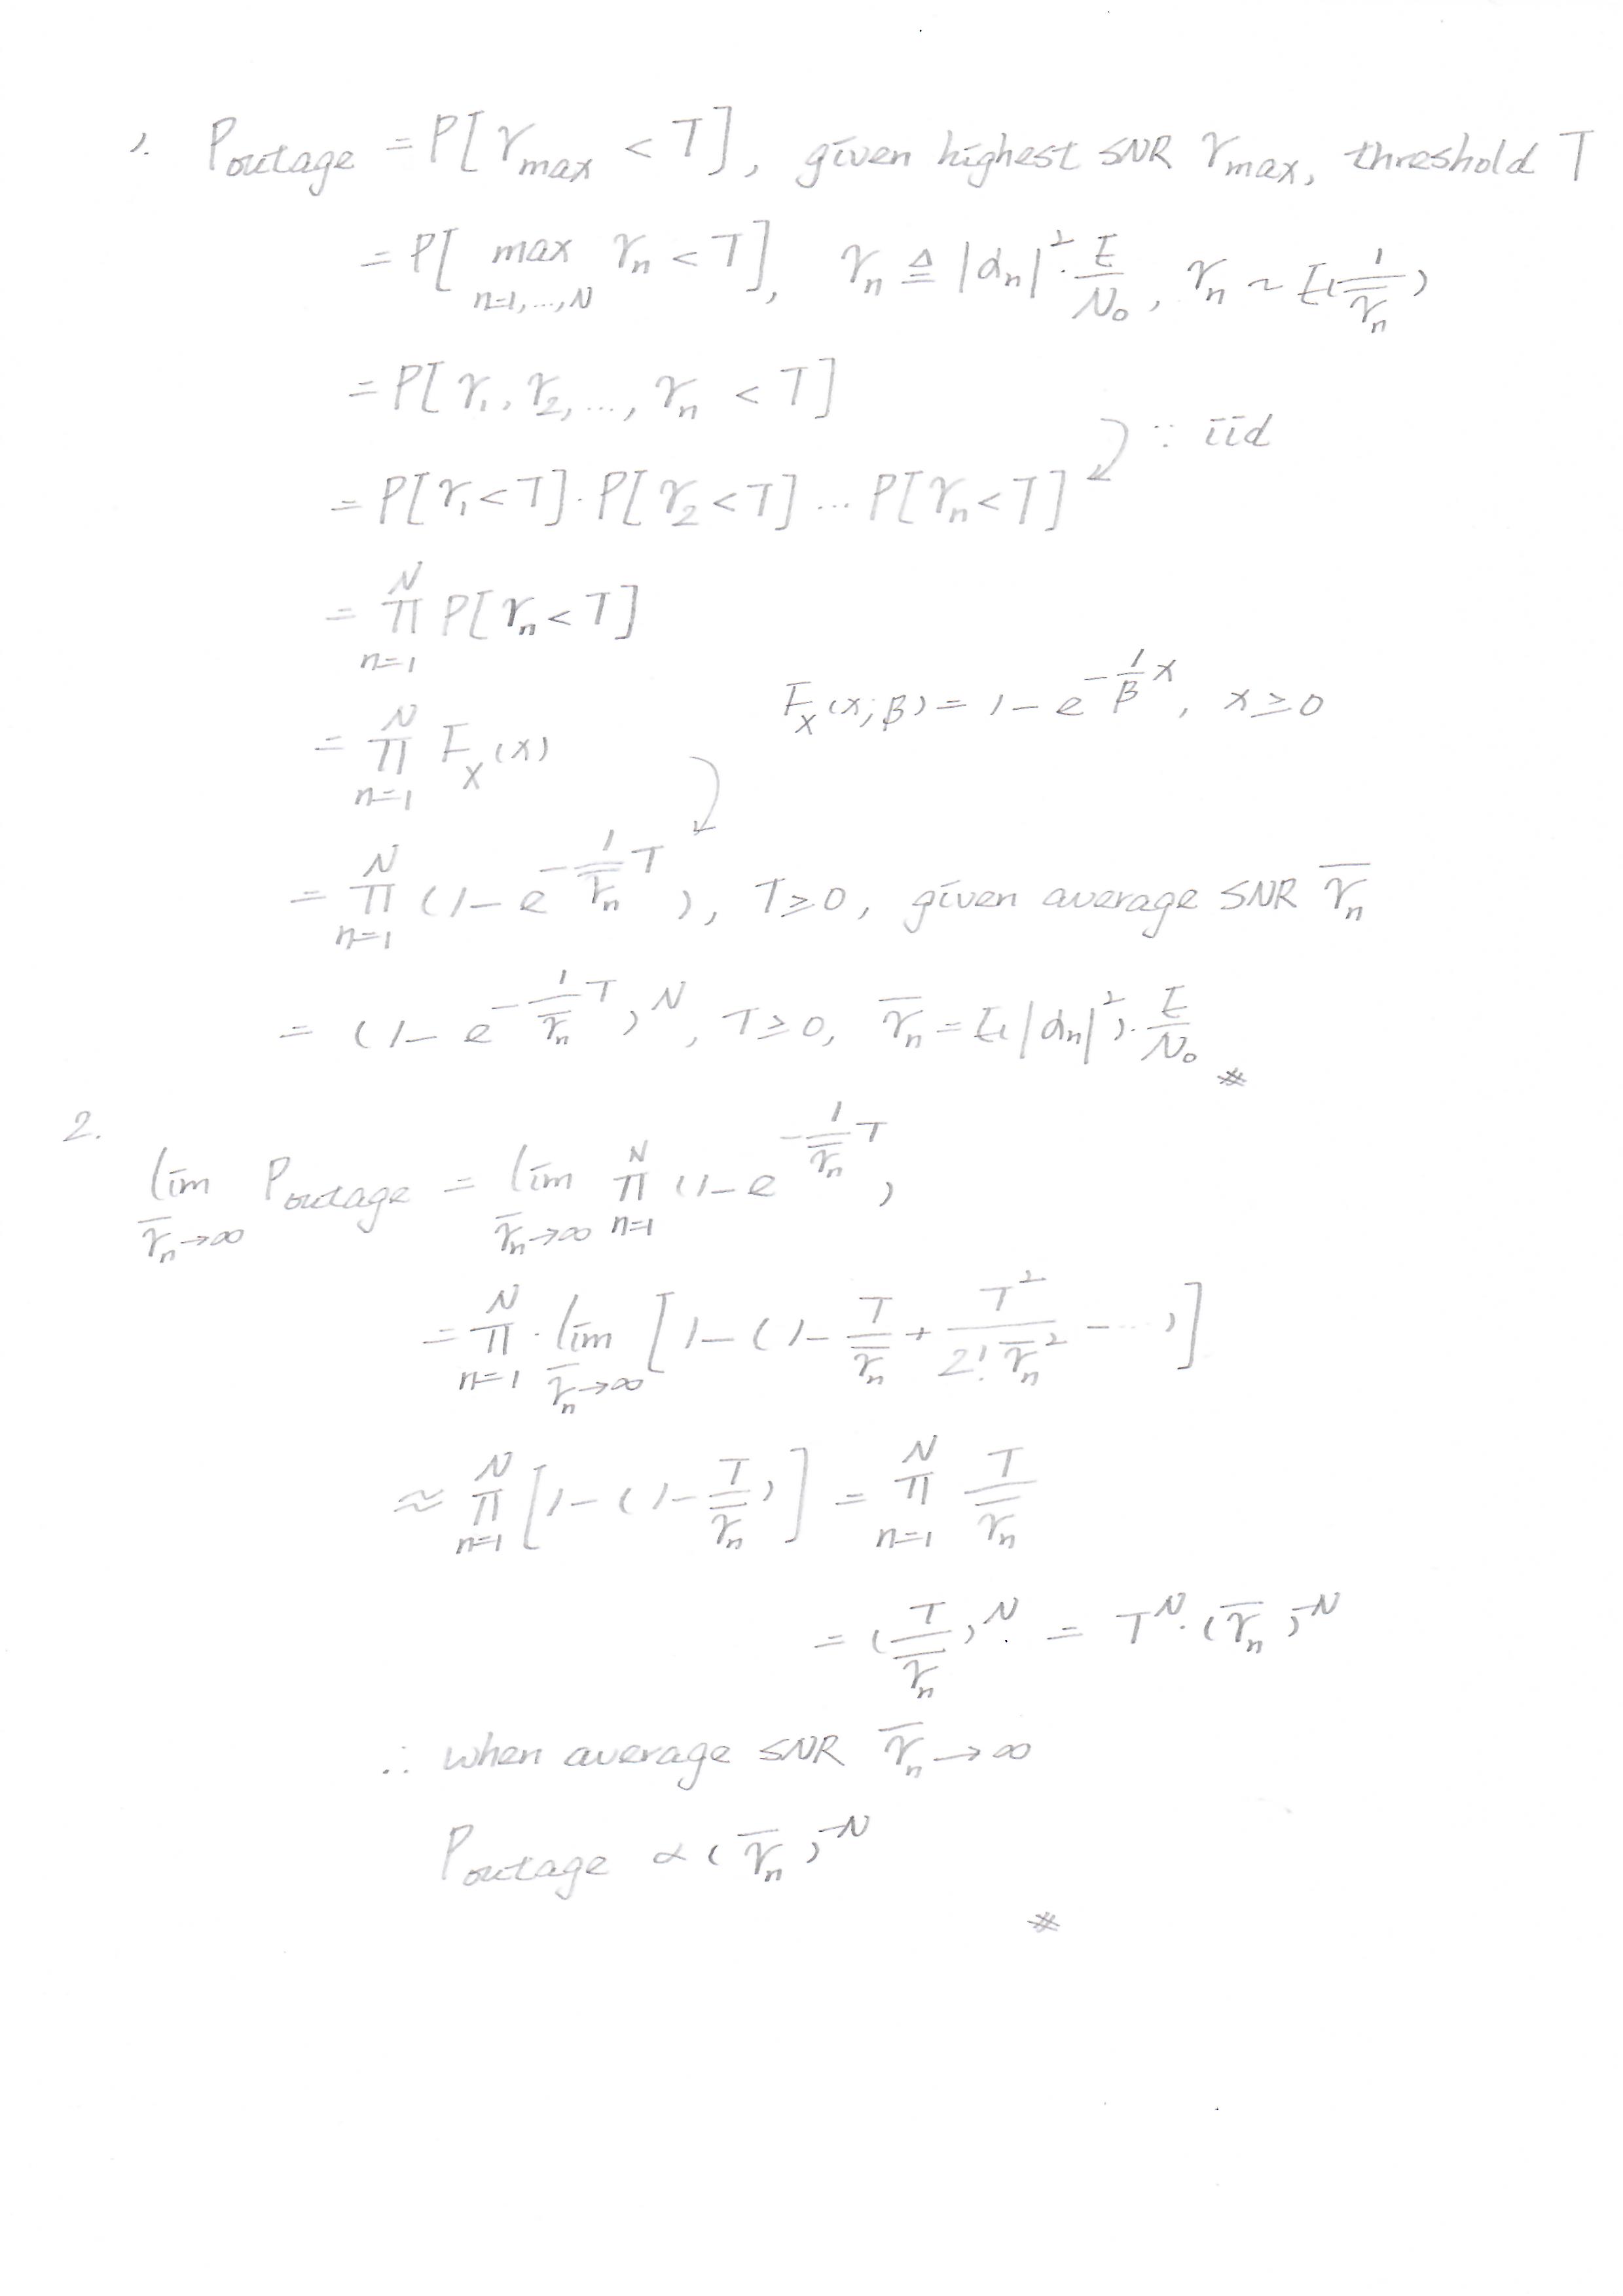 1. P_outage = P[γ_max < T], given highest SNR γ_max, threshold T
= P[ max_{n=1,...,N} γ_n < T ], γ_n ≜ |α_n|²·E/N₀, γ_n ~ E(1/γ̄_n)
= P[γ₁, γ₂, ..., γ_n < T]
∵ iid
= P[γ₁<T]·P[γ₂<T] ... P[γ_n<T]
= ∏_{n=1}^{N} P[γ_n<T]
F_X(x;β) = 1 - e^{-(1/β)x}, x ≥ 0
= ∏_{n=1}^{N} F_X(x)
= ∏_{n=1}^{N} (1 - e^{-(1/γ̄_n)T}), T ≥ 0, given average SNR γ̄_n
= (1 - e^{-(1/γ̄_n)T})^N, T ≥ 0, γ̄_n = E(|α_n|²)·E/N₀ #
2.
lim_{γ̄_n→∞} P_outage = lim_{γ̄_n→∞} ∏_{n=1}^{N} (1 - e^{-(1/γ̄_n)T})
= ∏_{n=1}^{N} · lim_{γ̄_n→∞} [1 - (1 - T/γ̄_n + T²/(2! γ̄_n²) - ...)]
≈ ∏_{n=1}^{N} [1 - (1 - T/γ̄_n)] = ∏_{n=1}^{N} T/γ̄_n
= (T/γ̄_n)^N = T^N·(γ̄_n)^{-N}
∴ when average SNR γ̄_n → ∞
P_outage ∝ (γ̄_n)^{-N}
#